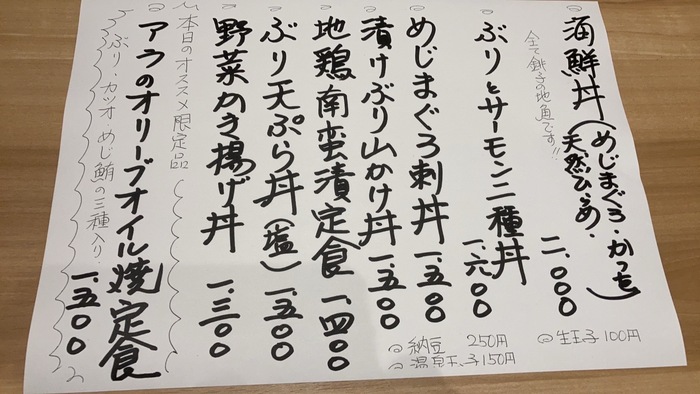 海鮮丼(めじまぐろ・かつを・天然ひらめ) 二、〇〇〇
全て銚子の地魚です!!
ぶりとサーモン二種丼 一、六〇〇
めじまぐろ刺丼 一、五〇〇
漬けぶり山かけ丼 一、五〇〇
地鶏南蛮漬定食 一、四〇〇
ぶり天ぷら丼(塩) 一、五〇〇
野菜かき揚げ丼 一、三〇〇
本日のオススメ限定品
アラのオリーブオイル焼定食 一、五〇〇
ぶり・カツオ・めじ鮪の三種入り
◎生玉子 100円
◎納豆 250円
◎温泉玉子 150円